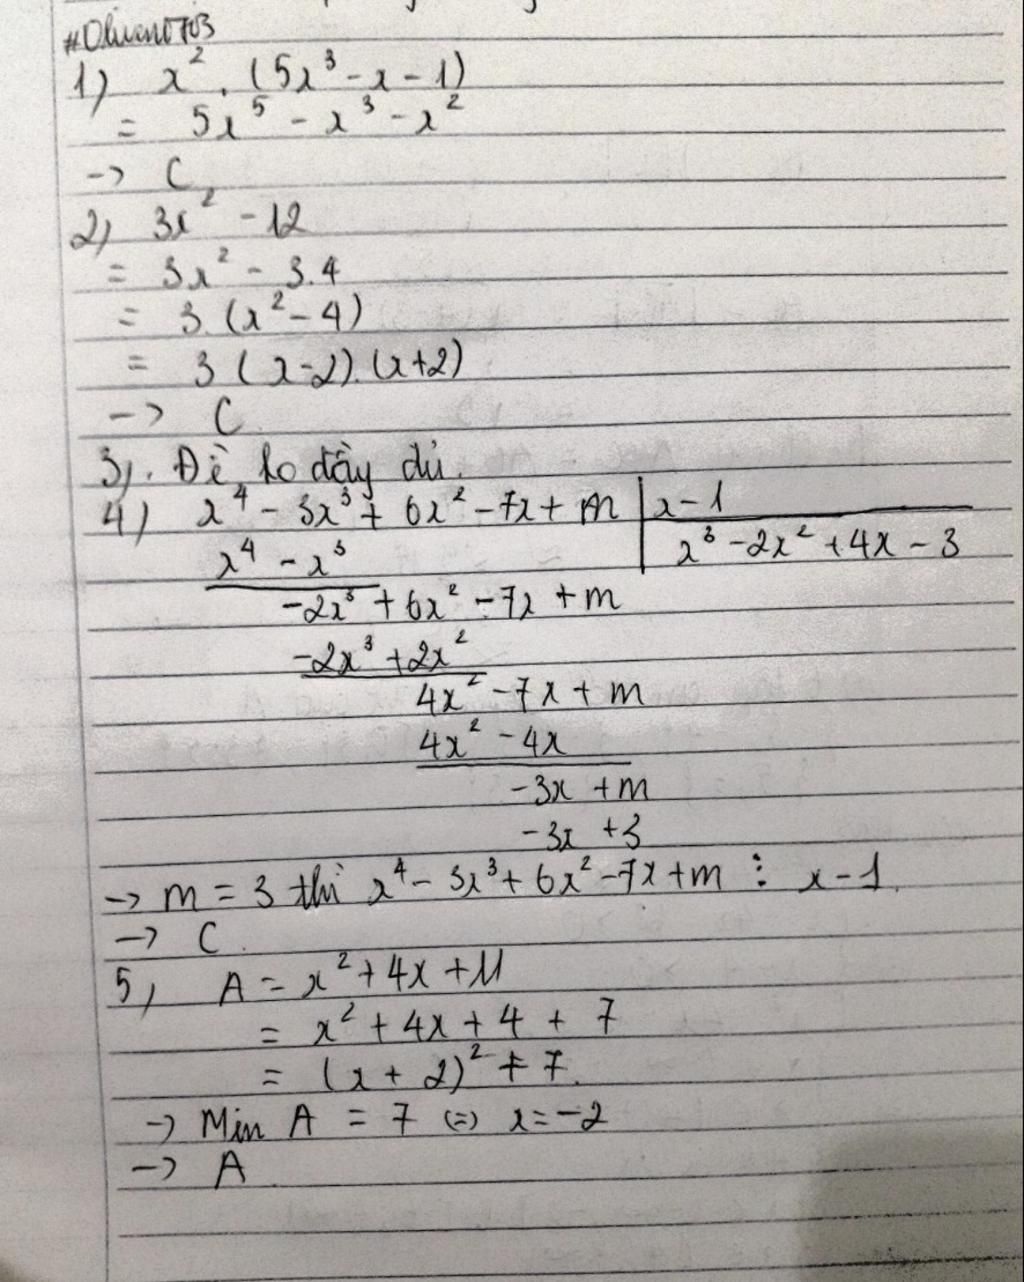 1) x² . (5x³ - x - 1)
= 5x⁵ - x³ - x²
-> C
2) 3x² - 12
= 3x² - 3.4
= 3.(x² - 4)
= 3(x-2).(x+2)
-> C
3). Đề ko đầy đủ.
4) x⁴ - 3x³ + 6x² - 7x + m | x - 1
x⁴ - x³ | x³ - 2x² + 4x - 3
-2x³ + 6x² - 7x + m
-2x³ + 2x²
4x² - 7x + m
4x² - 4x
-3x + m
-3x + 3
-> m = 3 thì x⁴ - 3x³ + 6x² - 7x + m ⋮ x - 1.
-> C.
5) A = x² + 4x + 11
= x² + 4x + 4 + 7
= (x + 2)² + 7.
-> Min A = 7 (=) x = -2
-> A